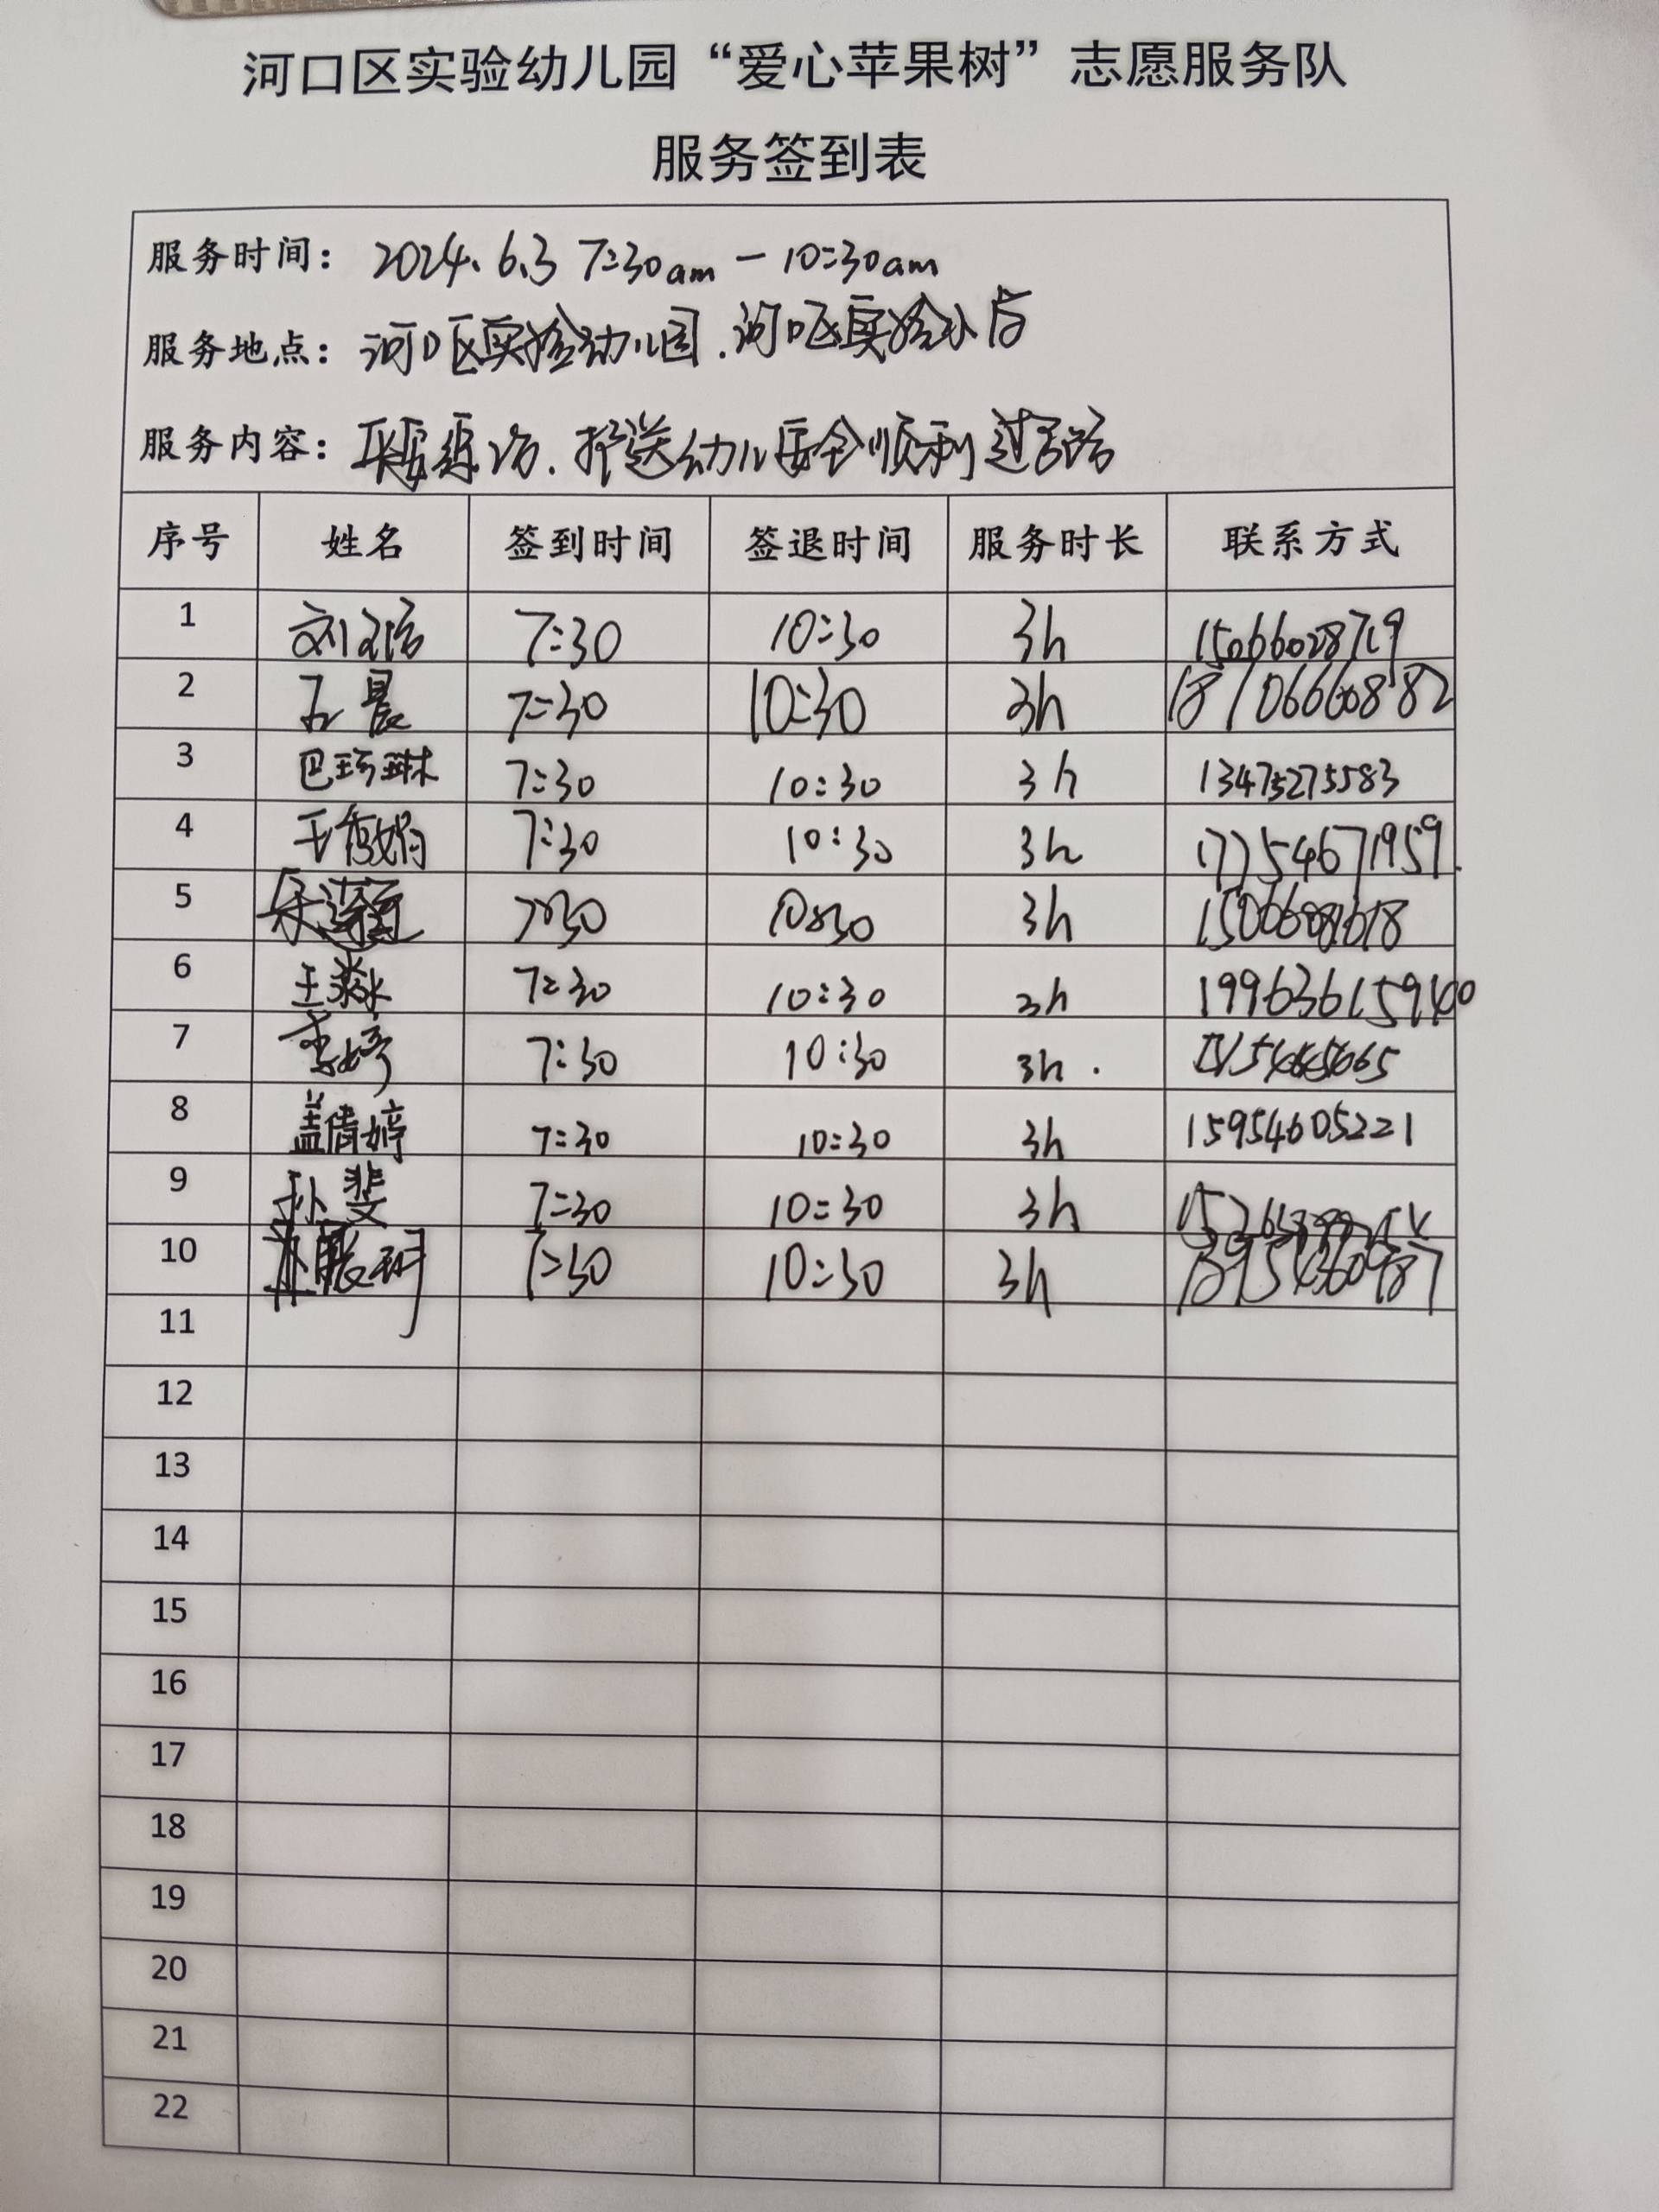 河口区实验幼儿园“爱心苹果树”志愿服务队
服务签到表
服务时间：2024.6.3 7:30am - 10:30am
服务地点：河口区实验幼儿园.河口区实验小店
服务内容：护送幼儿安全顺利过马路
序号 姓名 签到时间 签退时间 服务时长 联系方式
1 7:30 10:30 3h
2 孟晨 7:30 10:30 3h 18706660882
3 巴琦琳 7:30 10:30 3h 13475275583
4 王敏娟 7:30 10:30 3h 17754671959.
5 7:30 10:30 3h
6 王淼 7:30 10:30 3h
7 李婷 7:30 10:30 3h.
8 盖倩婷 7:30 10:30 3h 15954605221
9 孙斐 7:30 10:30 3h
10 7:30 10:30 3h
11
12
13
14
15
16
17
18
19
20
21
22